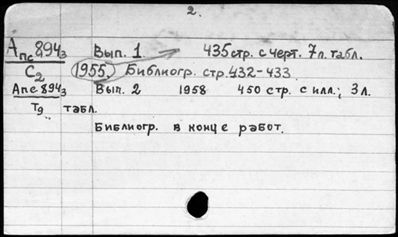 2.
Апс 8943 Вып. 1 435 стр. с черт. 7 л. табл.
С2 1955 Библиогр. стр. 432-433
Апс 8943 Вып. 2 1958 450 стр. с илл.; 3 л.
Т9 табл.
Библиогр. в конце работ.